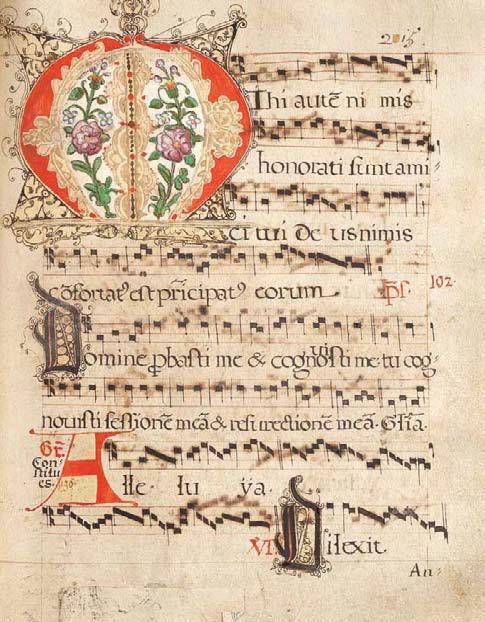 215
Mihi autē ni mis
honorati sunt ami
ci tui de us nimis
cōfortatꝰ est prīcipatꝰ eorum Ps. 102
Domine ꝓbasti me & cognouisti me: tu cog
nouisti sessionē meā & resurectionē meā. Gl̄ia.
Gr. Constitu es. 136 Alle lu ya.
VI. Dilexit.
An